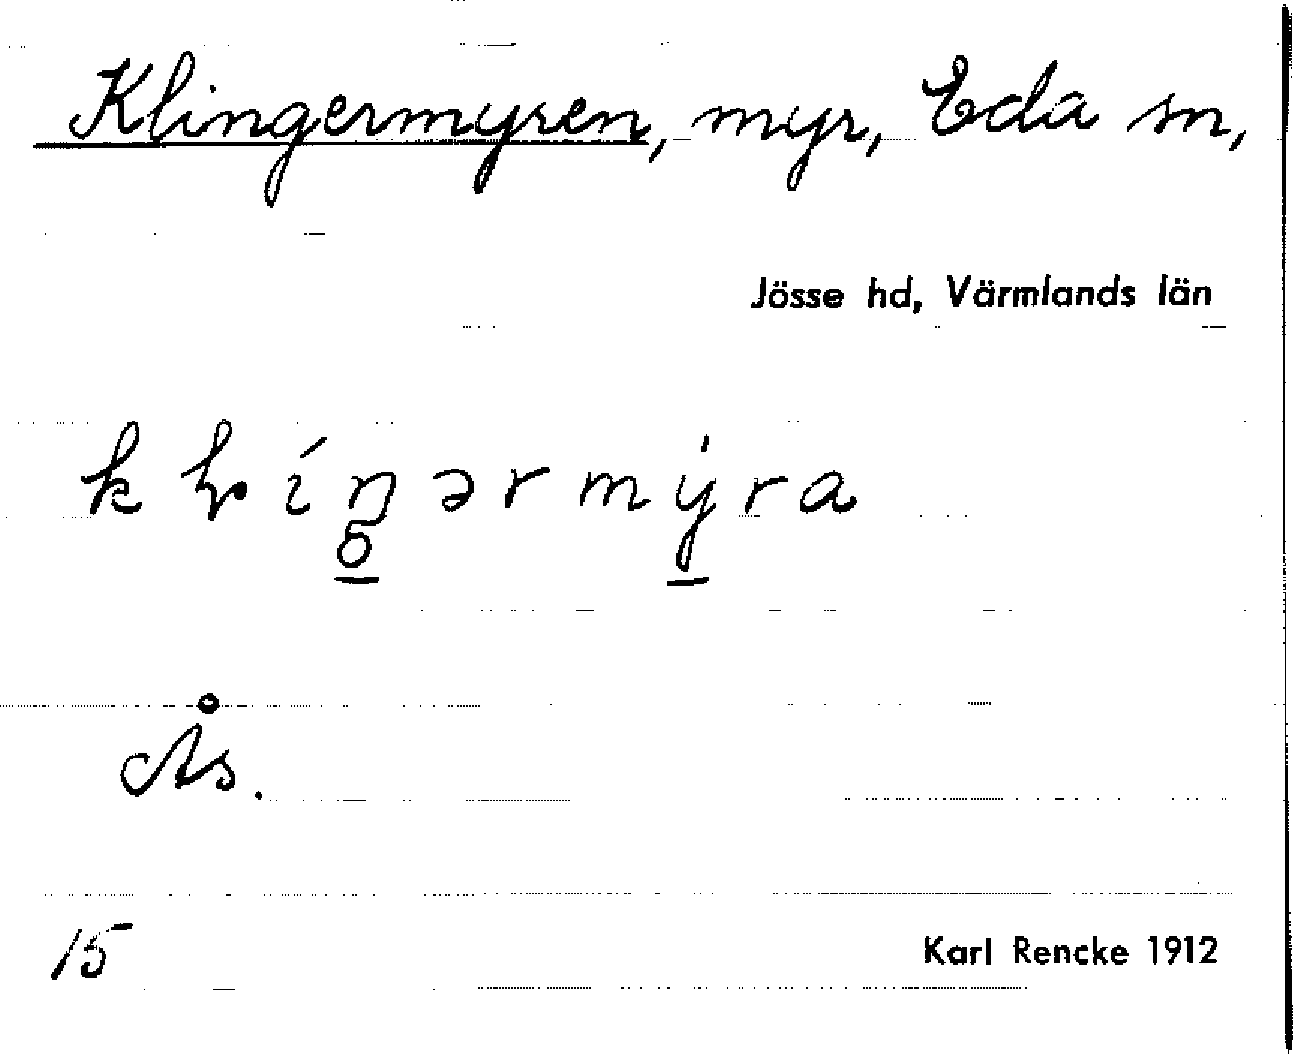 Klingermyren, myr, Eda sn,
Jösse hd, Värmlands län
Ås.
15
Karl Rencke 1912